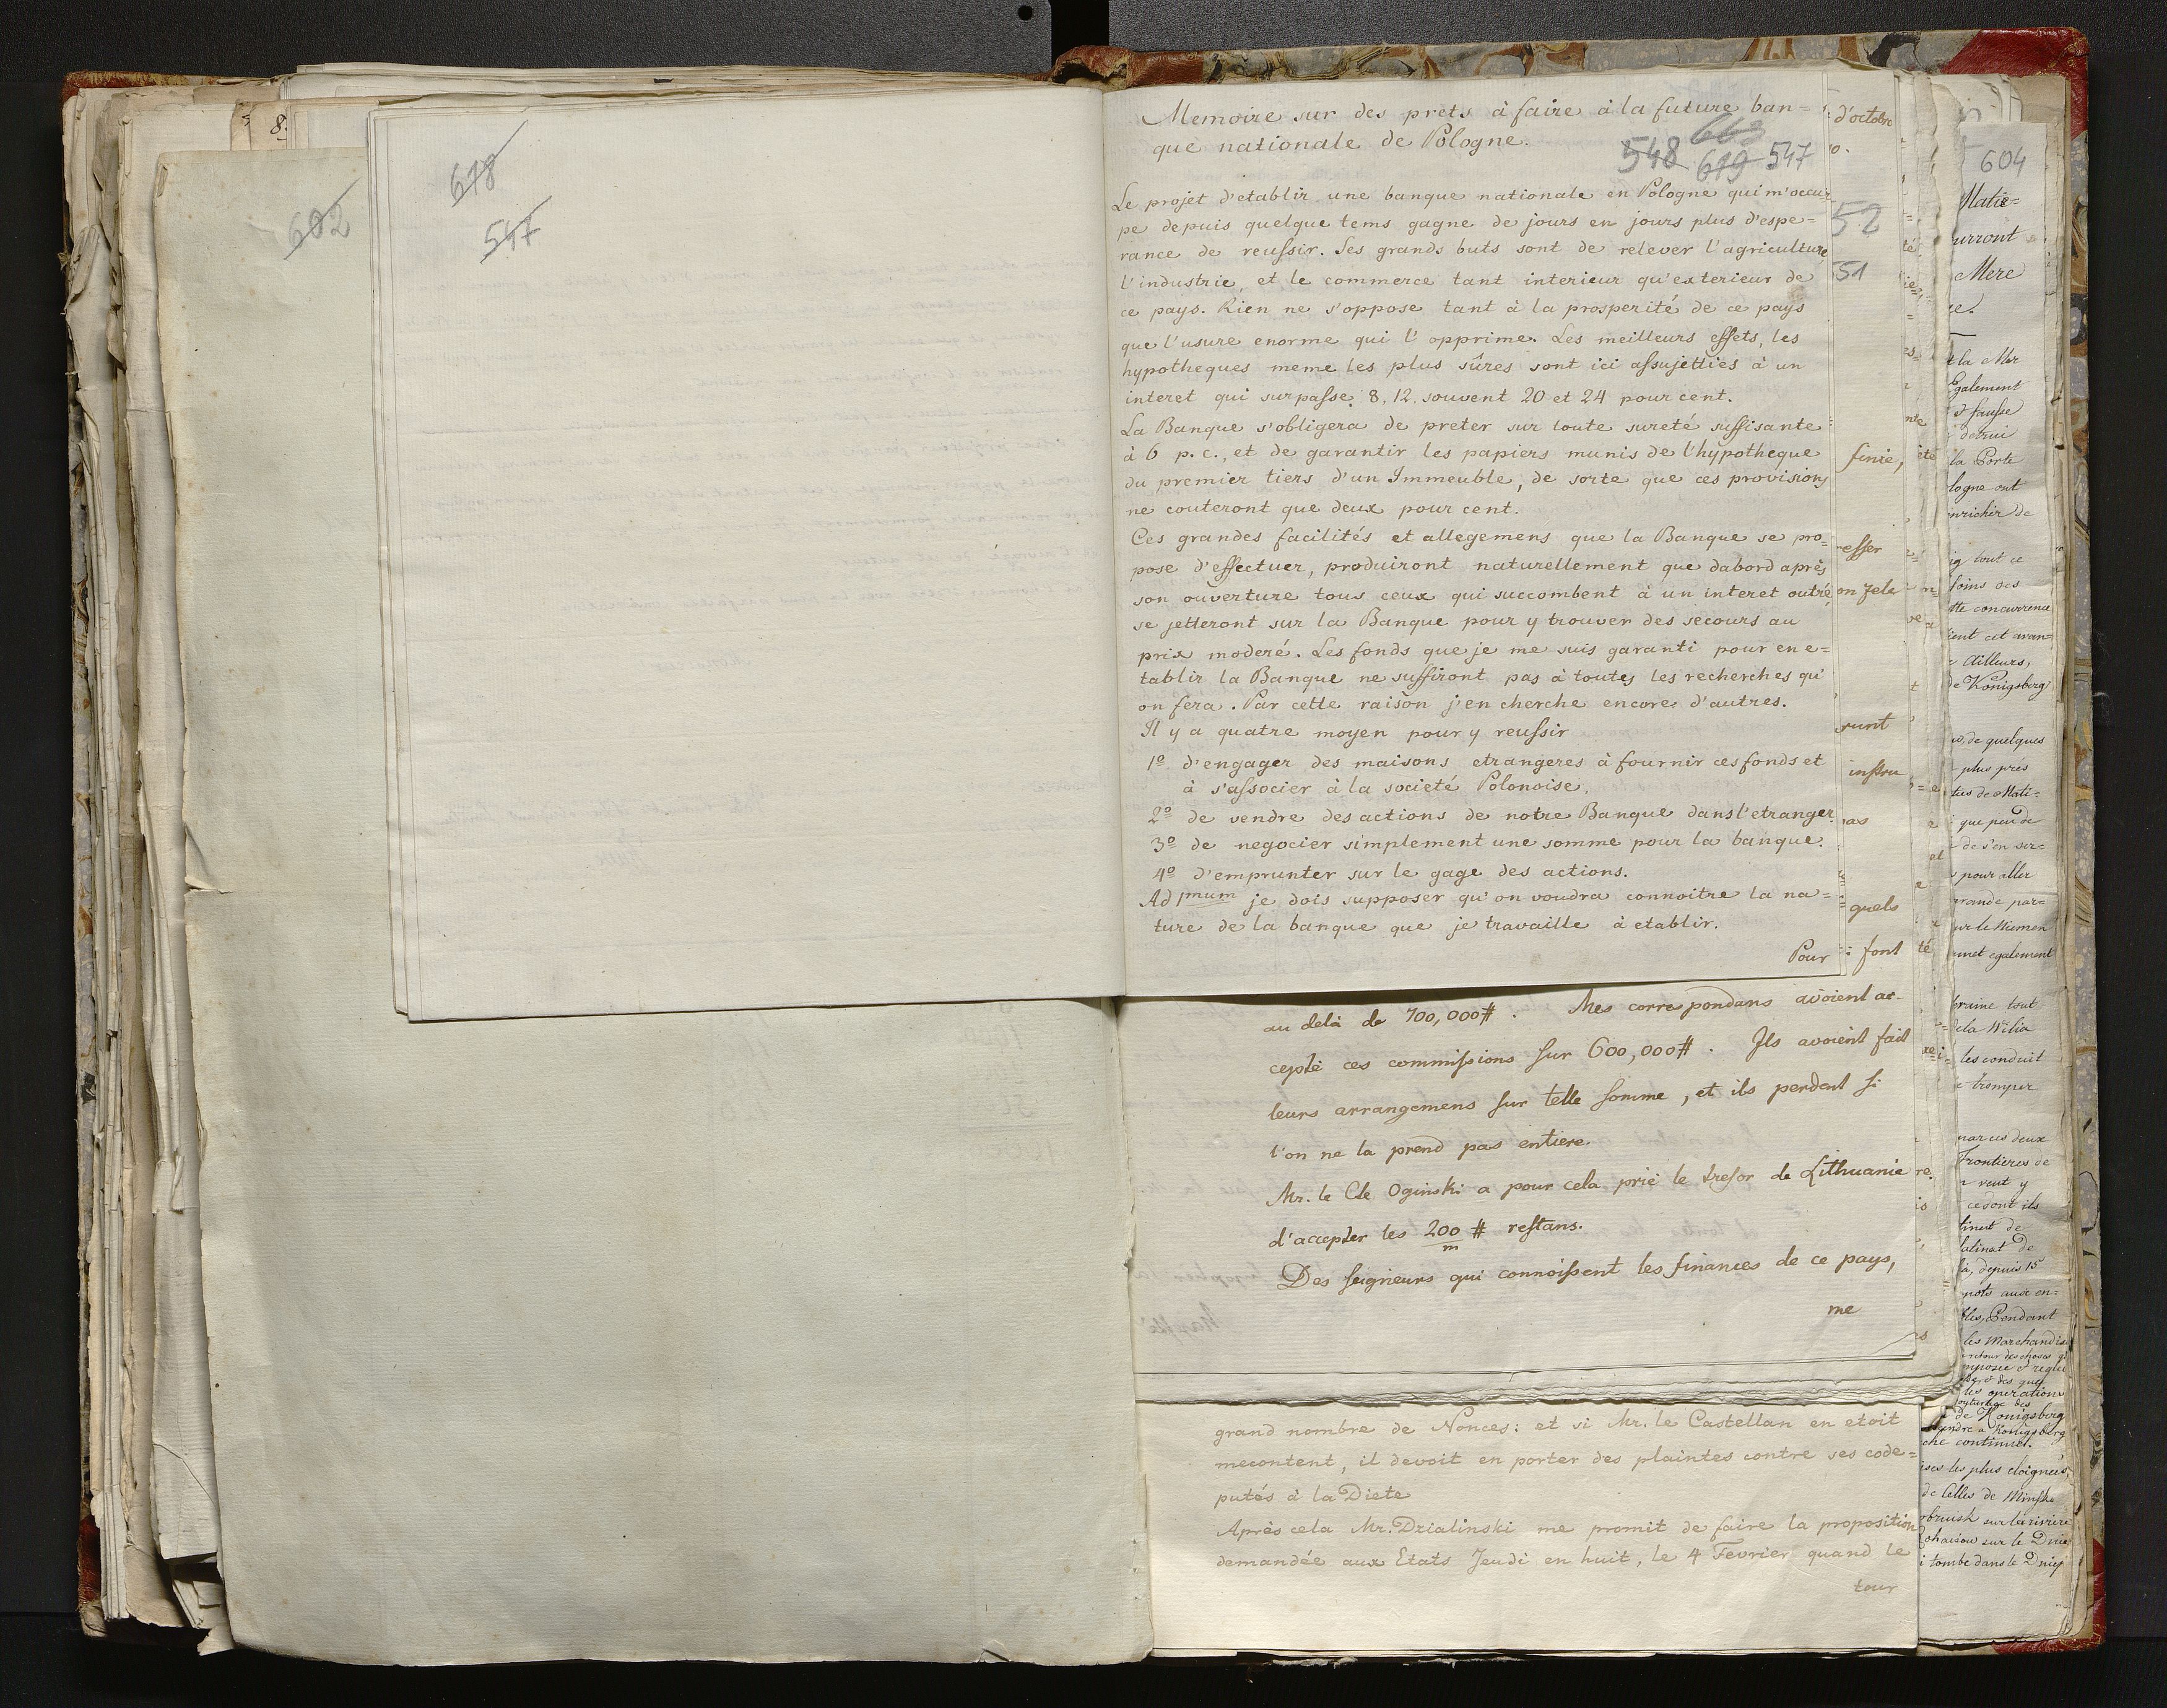 8.
602
618
547
Memoire sur des prets à faire à la future ban=
que nationale de Pologne.
663
548 619 547
Le projet d'etablir une banque nationale en Pologne qui m'occu=
pe depuis quelque tems gagne de jours en jours plus d'espe=
rance de reussir. Ses grands buts sont de relever l'agriculture
l'industrie, et le commerce tant interieur qu'exterieur de
ce pays. Rien ne s'oppose tant à la prosperité de ce pays
que l'usure enorme qui l'opprime. Les meilleurs effets, les
hypotheques meme les plus sûres sont ici assujetties à un
interet qui surpasse 8, 12, souvent 20 et 24 pour cent.
La Banque s'obligera de preter sur toute sureté suffisante
à 6 p. c., et de garantir les papiers munis de l'hypotheque
du premier tiers d'un Immeuble, de sorte que ces provisions
ne couteront que deux pour cent.
Ces grandes facilités et allegemens que la Banque se pro=
pose d'effectuer, produiront naturellement que dabord après
son ouverture tous ceux qui succombent à un interet outré,
se jetteront sur la Banque pour y trouver des secours au
prix moderé. Les fonds que je me suis garanti pour en e=
tablir la Banque ne suffiront pas à toutes les recherches qu'
on fera. Par cette raison j'en cherche encore d'autres.
Il y a quatre moyen pour y reussir
1º d'engager des maisons etrangeres à fournir ces fonds et
à s'associer à la societé Polonoise.
2º de vendre des actions de notre Banque dans l'etranger.
3º de negocier simplement une somme pour la banque.
4º d'emprunter sur le gage des actions.
Ad 1mum je dois supposer qu'on voudra connoitre la na=
ture de la banque que je travaille à etablir.
Pour
au delà de 700,000#. Mes correspondans avoient ac-
cepté ces commissions sur 600,000#. Ils avoient fait
leurs arrangemens sur telle somme, et ils perdent si
l'on ne la prend pas entiere.
Mr. le Cte Oginski a pour cela prié le tresor de Lithuanie
d'accepter les 200/m # restans.
Des seigneurs qui connoissent les finances de ce pays,
me
grand nombre de Nonces: et si Mr. le Castellan en etoit
mecontent, il devoit en porter des plaintes contre ses code=
putés à la Diete
Après cela Mr. Dzialinski me promit de faire la proposition
demandée aux Etats Jeudi en huit, le 4 Fevrier quand le
tour
d'octobre
52
551
finie,
esser
on zele
sunt
instru
pas
quels
font
604
Matie=
urront
Mere
et la Mer
Egalement
et fausse
la Porte
logne ont
enrichir de
tout ce
soins des
tte concurrence
ient cet avan=
Ailleurs,
de Königsberg
de quelques
plus près
que peu de
pour aller
grande par=
sur le Niemen
met egalement
la Wilia
les conduit
tromper
par ces deux
Frontieres de
veut y
ce sont ils
tinat de
latinat de
depuis 15
Pendant
les Marchandises
les operations
de Konigsberg
endre a Konigsberg
che continuel.
ises les plus eloignées,
de Celles de Minsk
obruisk sur la riviere
i tombe dans le Dniep